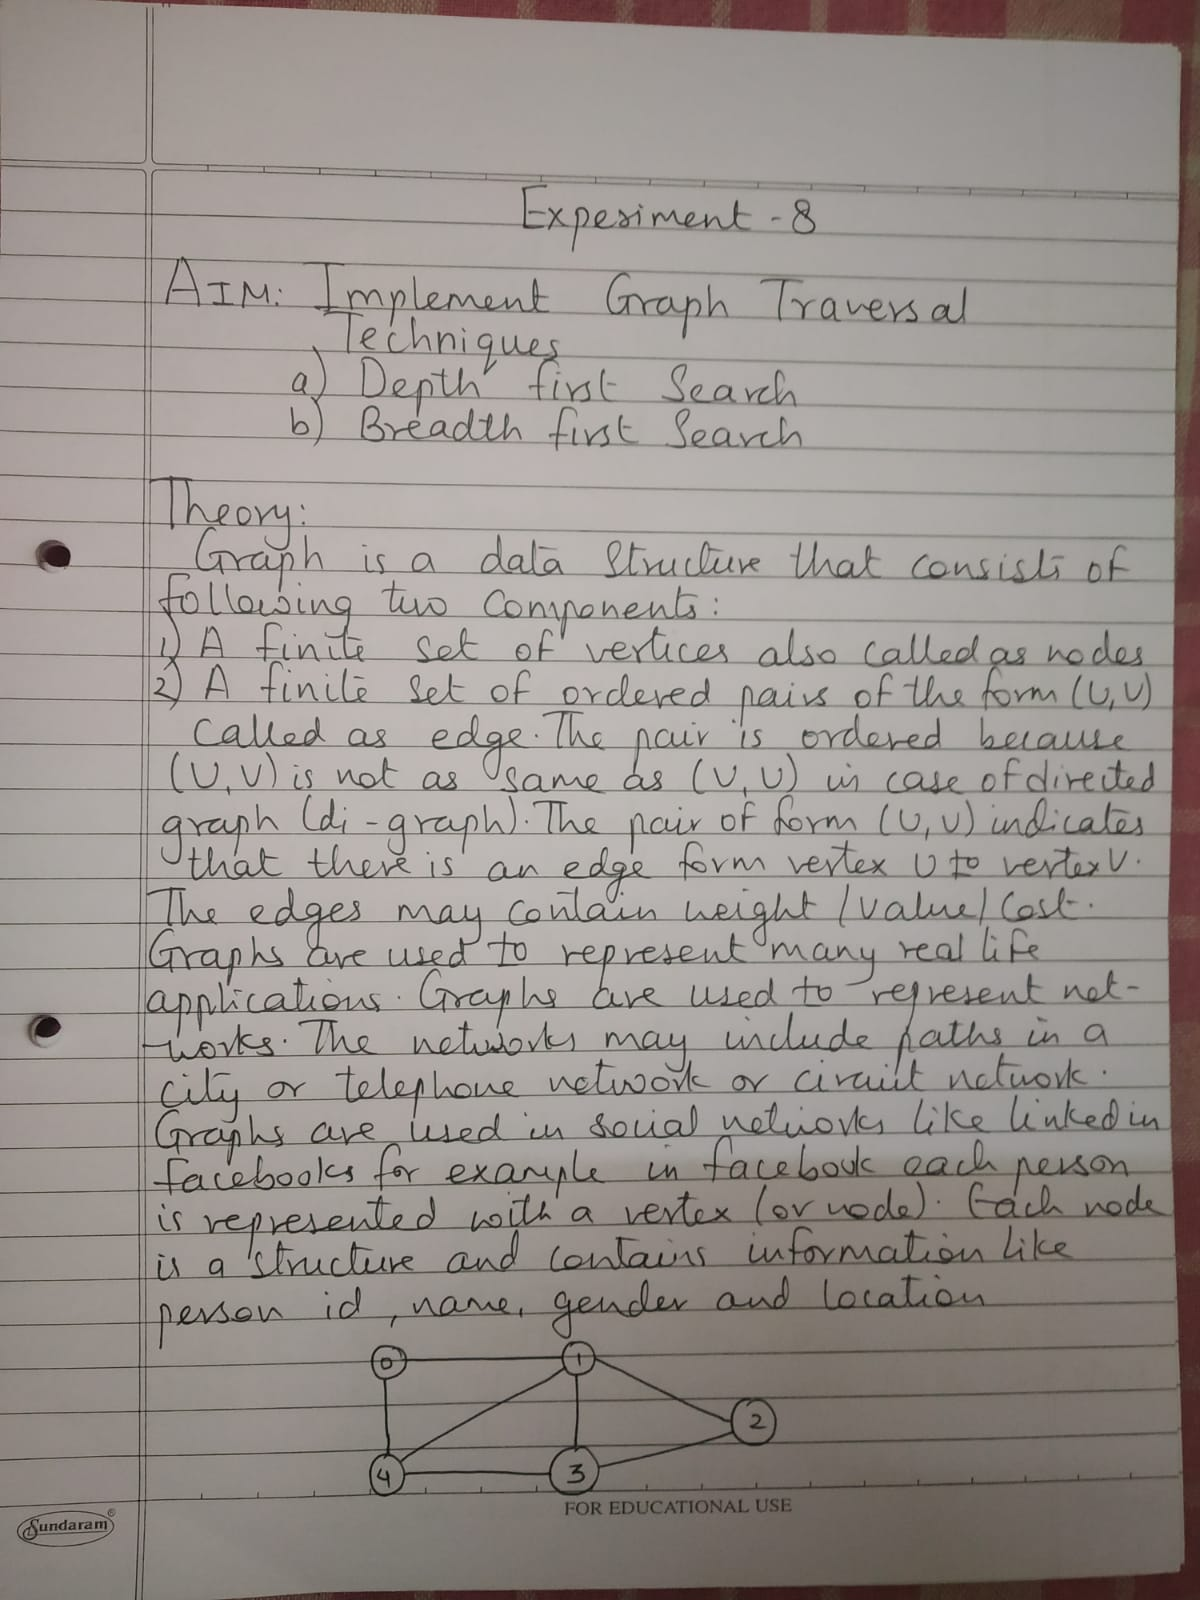 Experiment - 8
AIM: Implement Graph Traversal
Techniques
a) Depth first Search
b) Breadth first Search
Theory:
Graph is a data structure that consists of
following two components:
1) A finite set of vertices also called as nodes
2) A finite set of ordered pairs of the form (U,V)
called as edge. The pair is ordered because
(U,V) is not as same as (V,U) in case of directed
graph (di-graph). The pair of form (U,V) indicates
that there is an edge form vertex U to vertex V.
The edges may contain weight/value/cost.
Graphs are used to represent many real life
applications. Graphs are used to represent net-
works. The networks may include paths in a
city or telephone network or circuit network.
Graphs are used in social networks like linkedin
facebooks for example in facebook each person
is represented with a vertex (or node). Each node
is a structure and contains information like
person id, name, gender and location
0 1
2
4 3
FOR EDUCATIONAL USE
Sundaram®